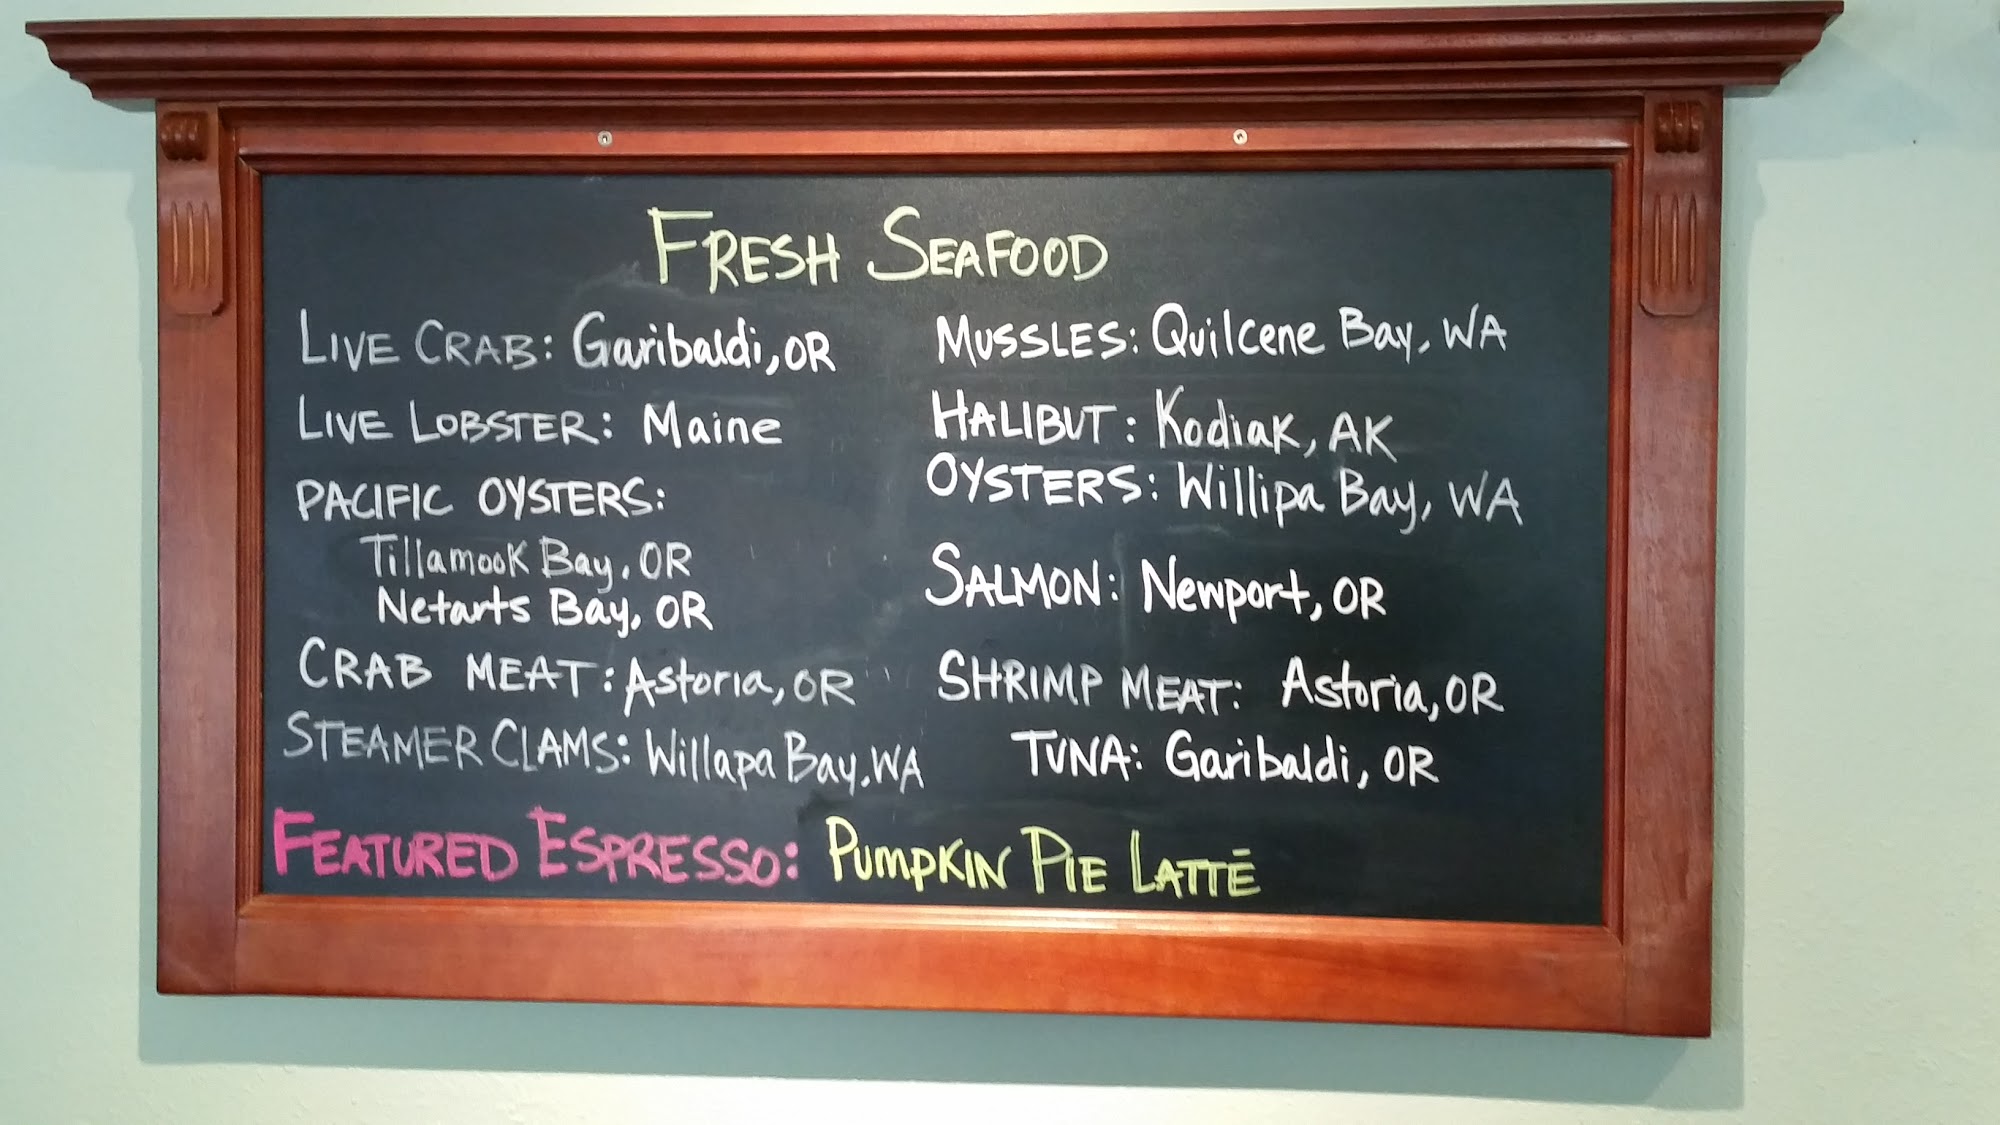 FRESH SEAFOOD
LIVE CRAB: Garibaldi, OR
LIVE LOBSTER: Maine
PACIFIC OYSTERS:
Tillamook Bay, OR
Netarts Bay, OR
CRAB MEAT: Astoria, OR
STEAMER CLAMS: Willapa Bay, WA
MUSSLES: Quilcene Bay, WA
HALIBUT: Kodiak, AK
OYSTERS: Willipa Bay, WA
SALMON: Newport, OR
SHRIMP MEAT: Astoria, OR
TUNA: Garibaldi, OR
FEATURED ESPRESSO: PUMPKIN PIE LATTĒ